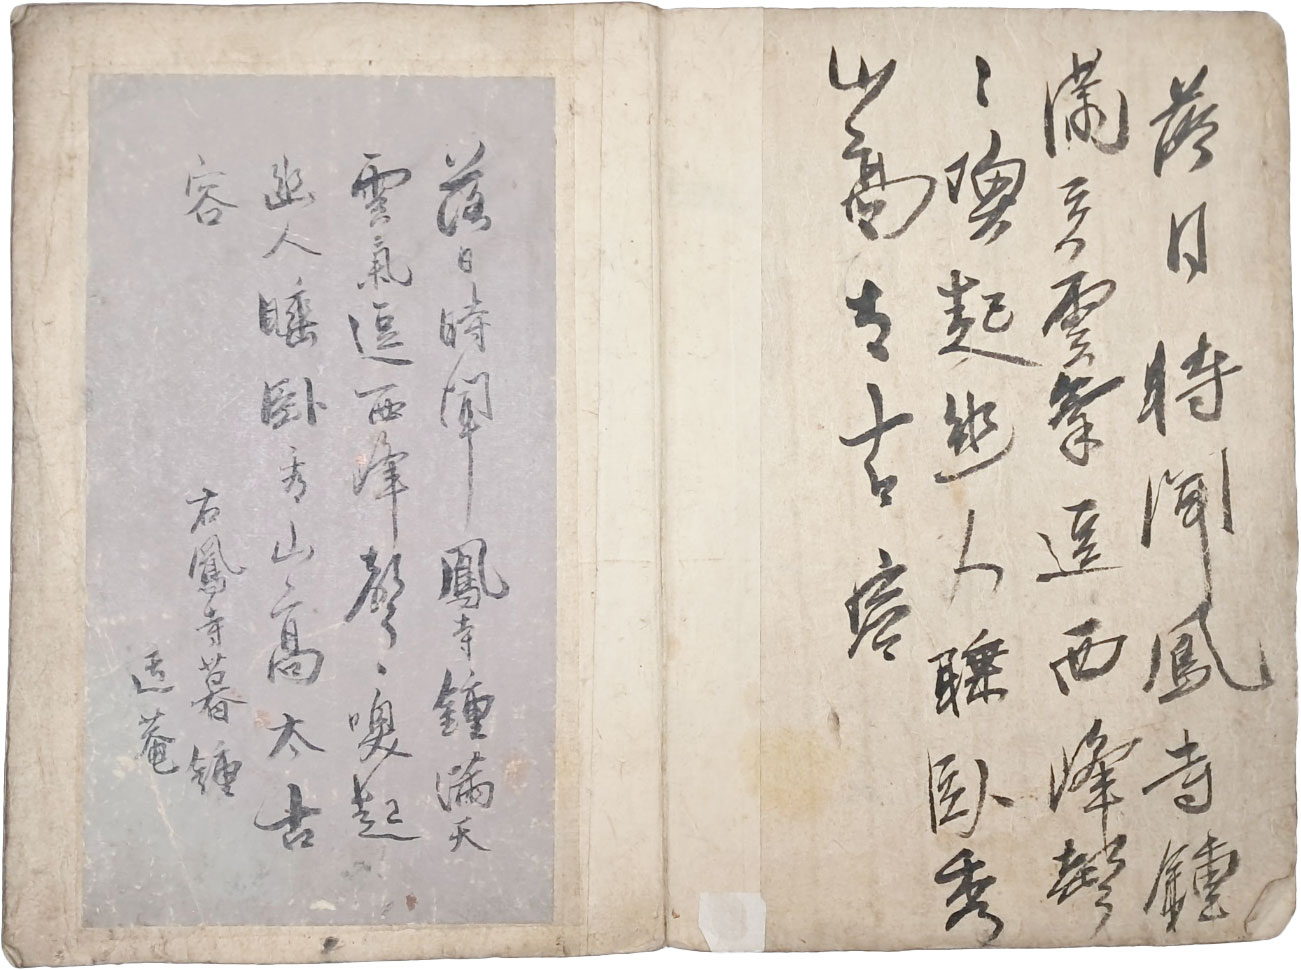 落日時聞鳳寺鍾
滿天雲氣逗西峰聲
〻喚起幽人睡臥秀
山高太古容
落日時聞鳳寺鍾滿天
雲氣逗西峰聲〻喚起
幽人睡臥秀山高太古
容
右鳳寺暮鍾
菴